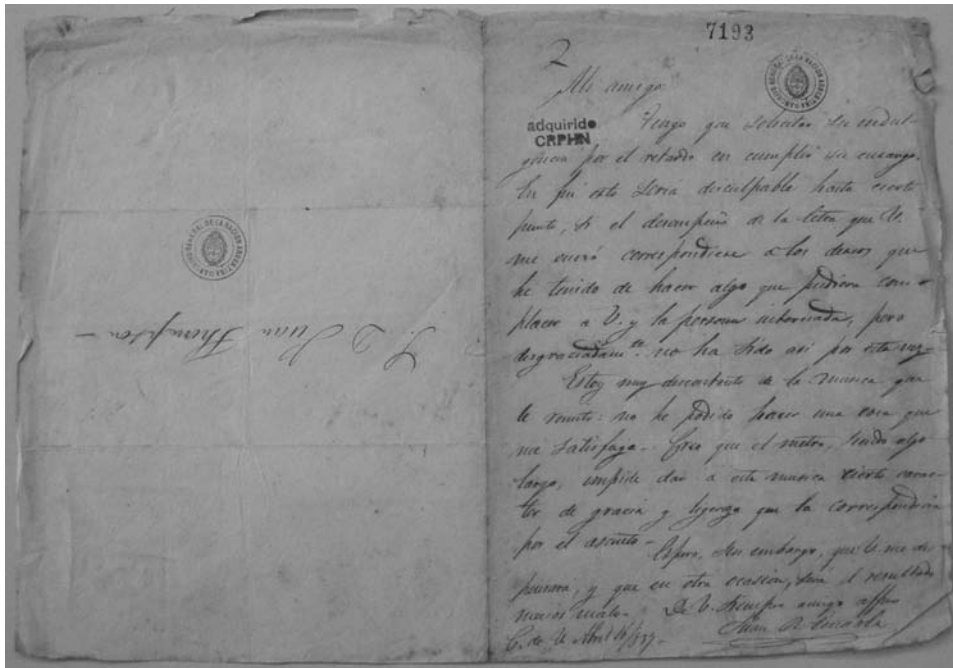 S. D. Juan Thompson
7193
2
Mi amigo
ARCHIVO GENERAL DE LA NACION ARGENTINA
adquirido
CRPHN
Tengo que solicitar su indul-
gencia por el retardo en cumplir su encargo.
En fin esto seria disculpable hasta cierto
punto, si el desempeño de la letra que V.
me envió correspondiese a los deseos que
he tenido de hacer algo que pudiera com-
placer a V. y la persona interesada, pero
desgraciadamte. no ha sido asi por esta vez-
Estoy muy descontento de la musica que
le remito: no he podido hacer una cosa que
me satisfaga- Creo que el metro, siendo algo
largo, impide dar a esta musica cierto carac-
ter de gracia y ligereza que la correspondia
por el asunto-
Espero, sin embargo, que V. me dis-
pensará, y que en otra ocasion, sera el resultado
menos malo. De V. siempre amigo affmo
Juan P. Esnaola
C. de V. Abril 16/837-